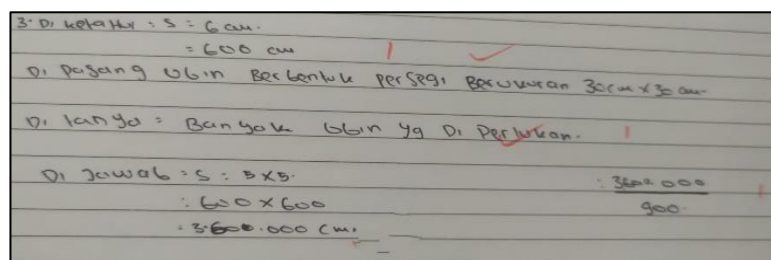 3. Di ketahui : S = 6 cm.
= 600 cm
Di pasang Ubin Berbentuk persegi Berukuran 30 cm x 30 cm.
Di tanya = Banyak Ubin yg Di perlukan.
Di Jawab = S = S x S.
: 600 x 600
: 3.600.000 cm.
: 3600.000
900.